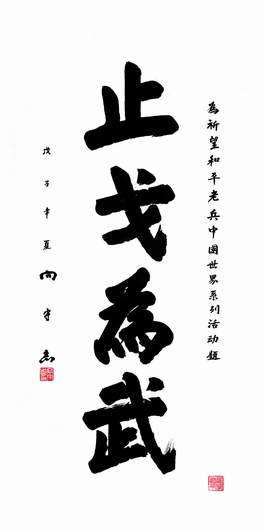 為祈望和平老兵中国世界系列活动题
止戈為武
戊子年夏
向守志